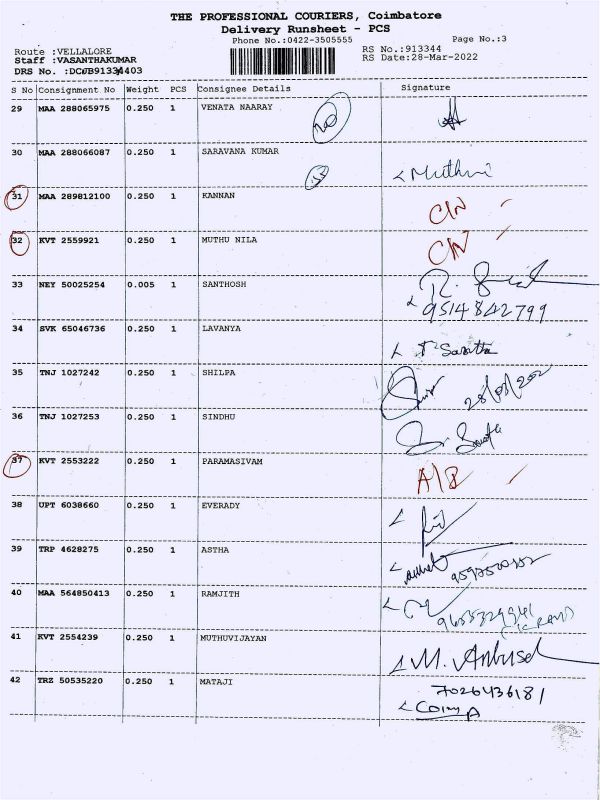 THE PROFESSIONAL COURIERS, Coimbatore
Delivery Runsheet - PCS
Phone No.:0422-3505555 Page No.:3
Route :VELLALORE RS No.:913344
Staff :VASANTHAKUMAR RS Date:28-Mar-2022
S No Consignment No Weight PCS Consignee Details Signature
29 MAA 288065975 0.250 1 VENATA NAARAY
30 MAA 288066087 0.250 1 SARAVANA KUMAR
31 MAA 289812100 0.250 1 KANNAN C/N
32 KVT 2559921 0.250 1 MUTHU NILA C/N
33 NEY 50025254 0.005 1 SANTHOSH
9514842799
34 SVK 65046736 0.250 1 LAVANYA
35 TNJ 1027242 0.250 1 SHILPA
36 TNJ 1027253 0.250 1 SINDHU
37 KVT 2553222 0.250 1 PARAMASIVAM
38 UPT 6038660 0.250 1 EVERADY
39 TRP 4628275 0.250 1 ASTHA
40 MAA 564850413 0.250 1 RAMJITH
41 KVT 2554239 0.250 1 MUTHUVIJAYAN
42 TRZ 50535220 0.250 1 MATAJI 7026436181